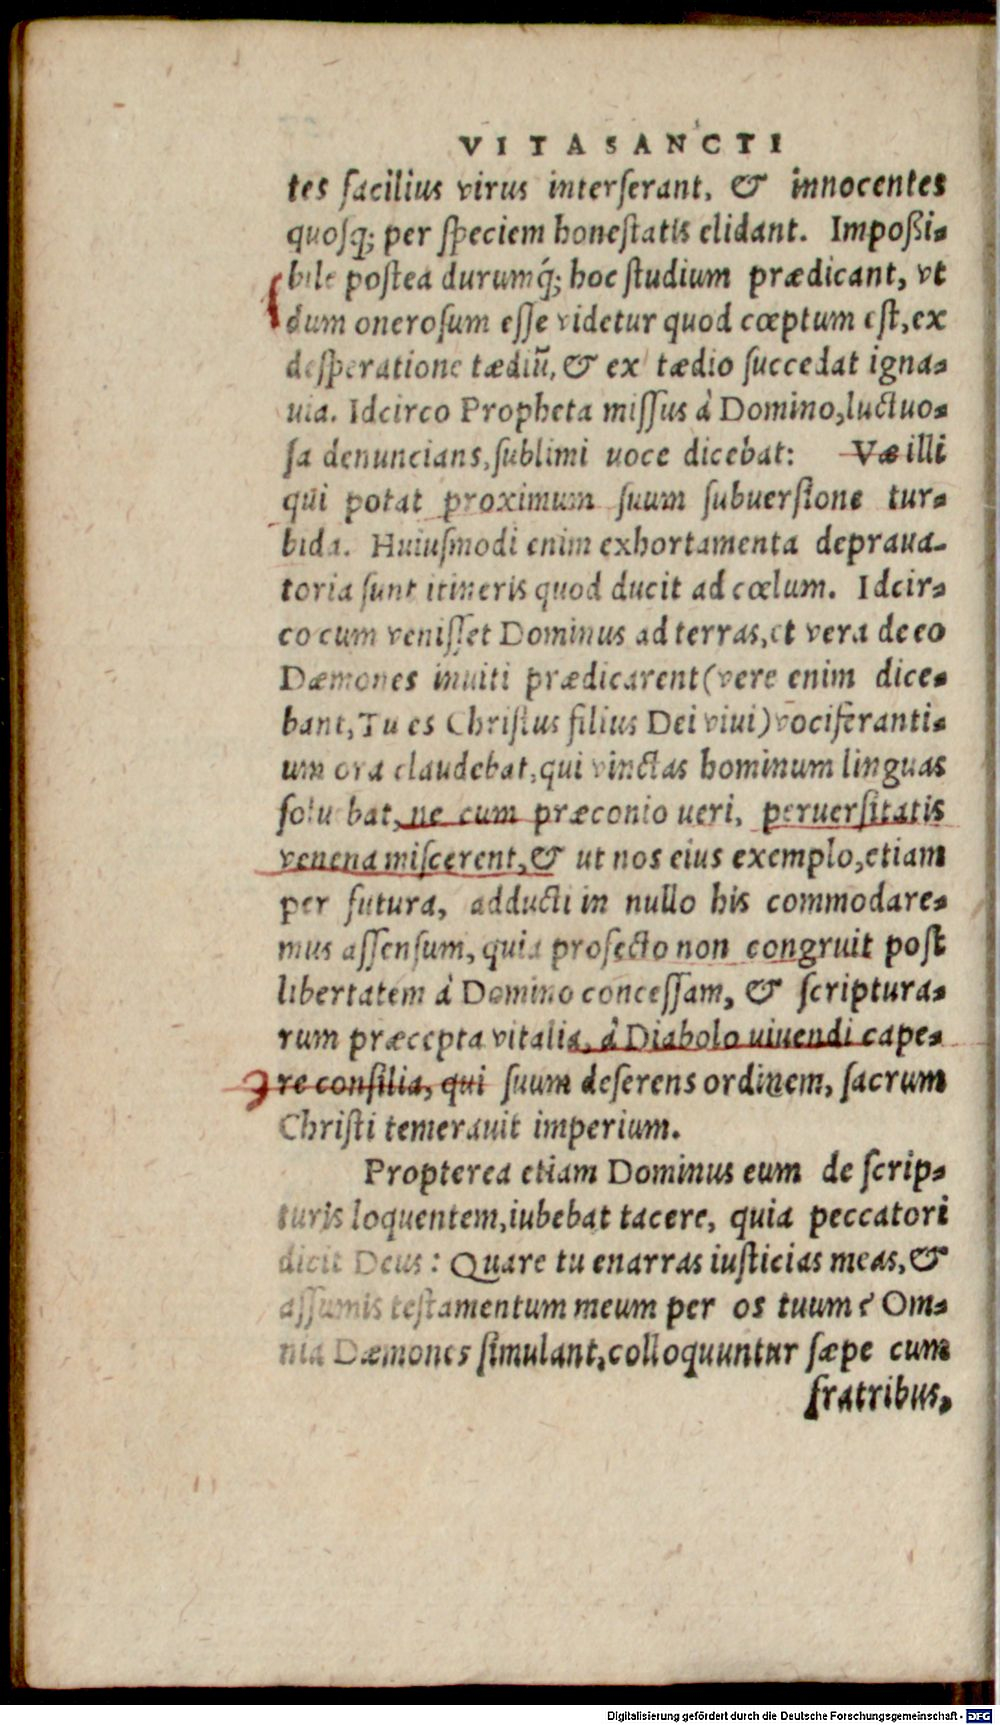 VITA SANCTI
tes facilius virus interserant, & innocentes
quosq; per speciem honestatis elidant. Impoßi-
bile postea durumq́; hoc studium prædicant, vt
dum onerosum esse videtur quod cœptum est, ex
desperatione tædiũ, & ex tædio succedat igna-
uia. Idcirco Propheta missus à Domino, luctuo-
sa denuncians, sublimi uoce dicebat: Væ illi
qui potat proximum suum subuersione tur-
bida. Huiusmodi enim exhortamenta depraua-
toria sunt itineris quod ducit ad cœlum. Idcir-
co cum venisset Dominus ad terras, et vera de eo
Dæmones inuiti prædicarent (vere enim dice-
bant, Tu es Christus filius Dei viui) vociferanti-
um ora claudebat, qui vinctas hominum linguas
solu bat, ne cum præconio ueri, peruersitatis
venena miscerent, & ut nos eius exemplo, etiam
per futura, adducti in nullo his commodare-
mus assensum, quia profecto non congruit post
libertatem à Domino concessam, & scriptura-
rum præcepta vitalia, à Diabolo uiuendi cape-
re consilia, qui suum deserens ordinem, sacrum
Christi temerauit imperium.
Propterea etiam Dominus eum de scrip-
turis loquentem, iubebat tacere, quia peccatori
dicit Deus: Quare tu enarras iusticias meas, &
assumis testamentum meum per os tuum? Om-
nia Dæmones simulant, colloquuntur sæpe cum
fratribus,
Digitalisierung gefördert durch die Deutsche Forschungsgemeinschaft - DFG